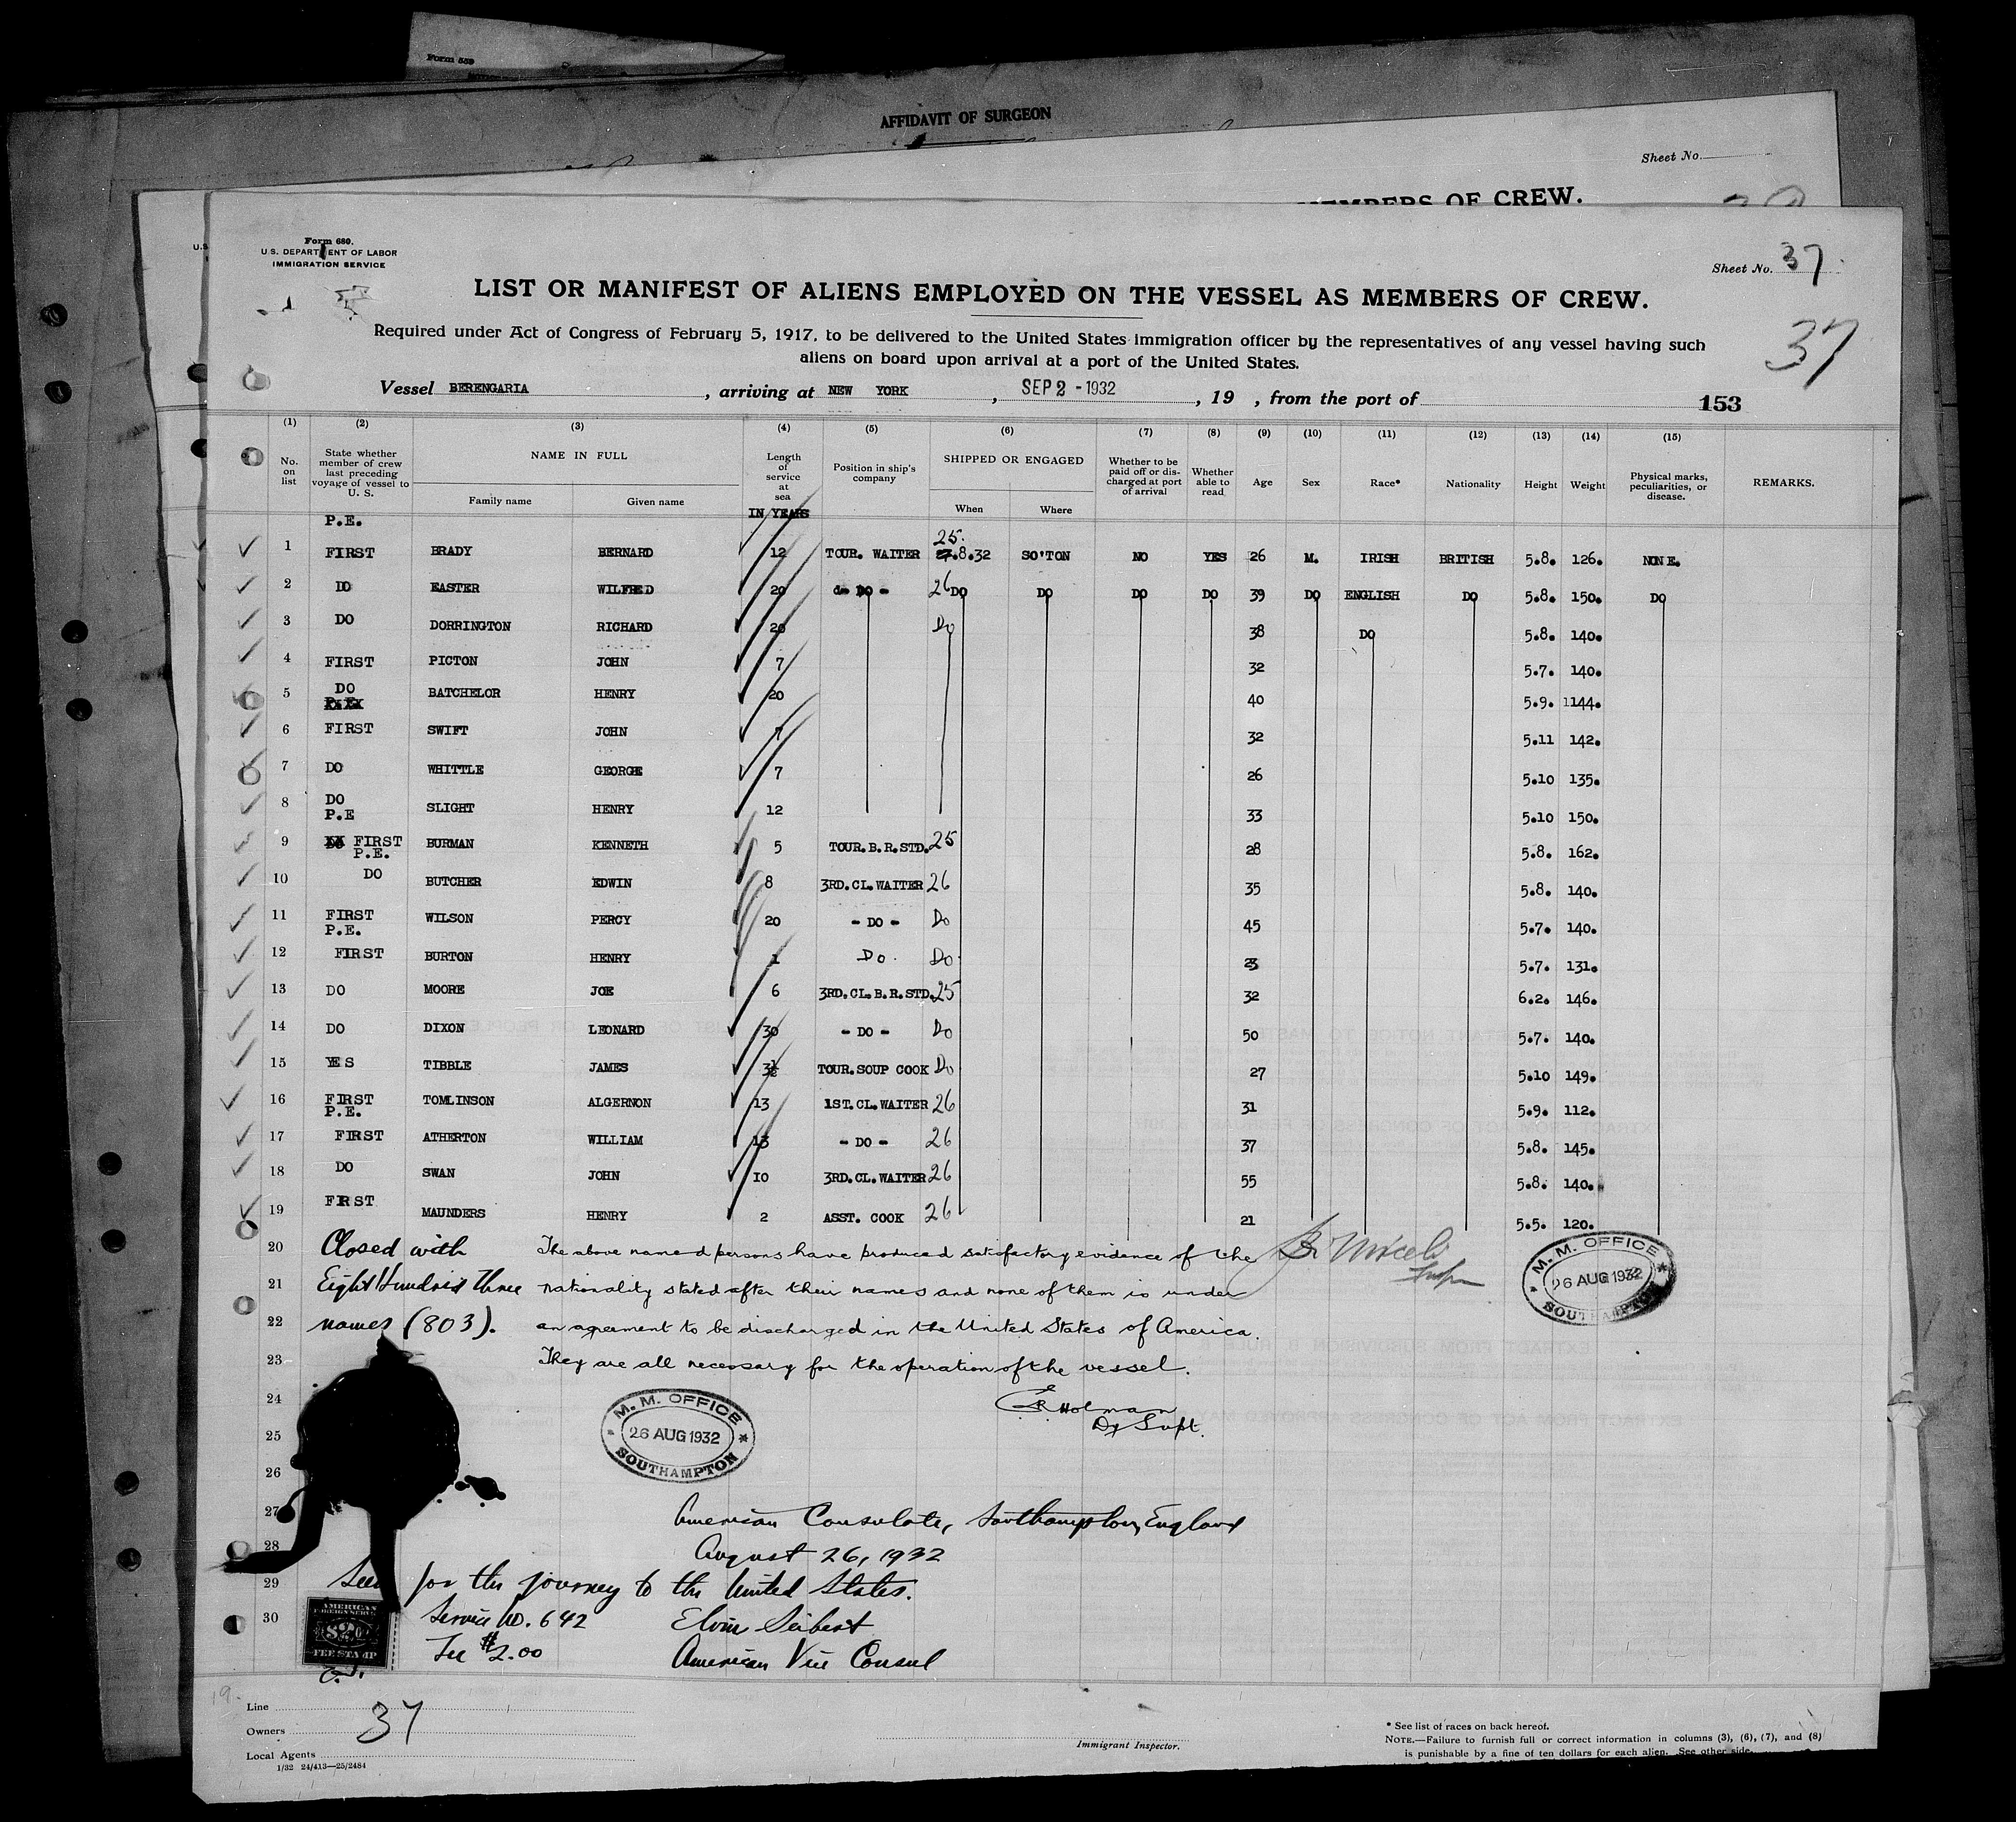 Form 559
AFFIDAVIT OF SURGEON
Sheet No.
MEMBERS OF CREW.
Form 680.
U. S. DEPARTMENT OF LABOR
IMMIGRATION SERVICE
Sheet No. 37
LIST OR MANIFEST OF ALIENS EMPLOYED ON THE VESSEL AS MEMBERS OF CREW.
37
Required under Act of Congress of February 5, 1917, to be delivered to the United States immigration officer by the representatives of any vessel having such
aliens on board upon arrival at a port of the United States.
Vessel BERENGARIA, arriving at NEW YORK, SEP 2 - 1932, 19 , from the port of 153
(1) (2) (3) (4) (5) (6) (7) (8) (9) (10) (11) (12) (13) (14) (15)
No. on list State whether member of crew last preceding voyage of vessel to U. S. NAME IN FULL Family name Given name Length of service at sea IN YEARS Position in ship's company SHIPPED OR ENGAGED When Where Whether to be paid off or discharged at port of arrival Whether able to read Age Sex Race* Nationality Height Weight Physical marks, peculiarities, or disease. REMARKS.
P.E.
1 FIRST BRADY BERNARD 12 TOUR. WAITER 25.8.32 SO'TON NO YES 26 M. IRISH BRITISH 5.8. 126. NONE.
2 DO EASTER WILFRED 20 - DO - 26 DO DO DO DO 39 DO ENGLISH DO 5.8. 150. DO
3 DO DORRINGTON RICHARD 20 Do 38 DO 5.8. 140.
4 FIRST PICTON JOHN 7 32 5.7. 140.
5 DO BATCHELOR HENRY 20 40 5.9. 1144.
6 FIRST SWIFT JOHN 7 32 5.11 142.
7 DO WHITTLE GEORGE 7 26 5.10 135.
8 DO SLIGHT HENRY 12 33 5.10 150.
P.E
9 FIRST BURMAN KENNETH 5 TOUR.B.R.STD. 25 28 5.8. 162.
P.E.
10 DO BUTCHER EDWIN 8 3RD.CL.WAITER 26 35 5.8. 140.
11 FIRST WILSON PERCY 20 - DO - Do 45 5.7. 140.
P.E.
12 FIRST BURTON HENRY 1 Do. Do. 23 5.7. 131.
13 DO MOORE JOE 6 3RD.CL.B.R.STD. 25 32 6.2. 146.
14 DO DIXON LEONARD 30 - DO - Do 50 5.7. 140.
15 YES TIBBLE JAMES 3½ TOUR.SOUP COOK Do 27 5.10 149.
16 FIRST TOMLINSON ALGERNON 13 1ST.CL.WAITER 26 31 5.9. 112.
P.E.
17 FIRST ATHERTON WILLIAM 13 - DO - 26 37 5.8. 145.
18 DO SWAN JOHN 10 3RD.CL.WAITER 26 55 5.8. 140.
19 FIRST MAUNDERS HENRY 2 ASST. COOK 26 21 5.5. 120.
20 Closed with The above named persons have produced satisfactory evidence of the
21 Eight Hundred Three nationality stated after their names and none of them is under
22 names (803). an agreement to be discharged in the United States of America.
23 They are all necessary for the operation of the vessel.
M. M. OFFICE
26 AUG 1932
SOUTHAMPTON
24 Holman
Dy Supt.
M. M. OFFICE
25 26 AUG 1932
SOUTHAMPTON
26
27 American Consulate, Southampton, England
28 August 26, 1932
29 Seen for the journey to the United States.
30 Service No. 642 Elvin Seibert
Fee $2.00 American Vice Consul
AMERICAN
FOREIGN SERVICE
$2.00
FEE STAMP
19.
Line
Owners 37
Local Agents
1/32 24/413—25/2484
Immigrant Inspector.
* See list of races on back hereof.
NOTE.—Failure to furnish full or correct information in columns (3), (6), (7), and (8)
is punishable by a fine of ten dollars for each alien. See other side.